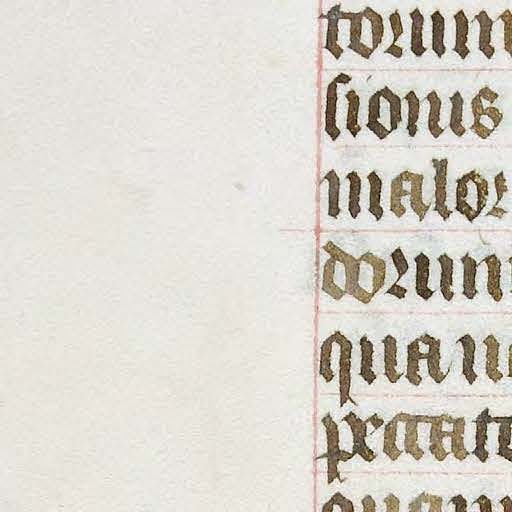 torum
sionis
malor
dorum
quan
peccato